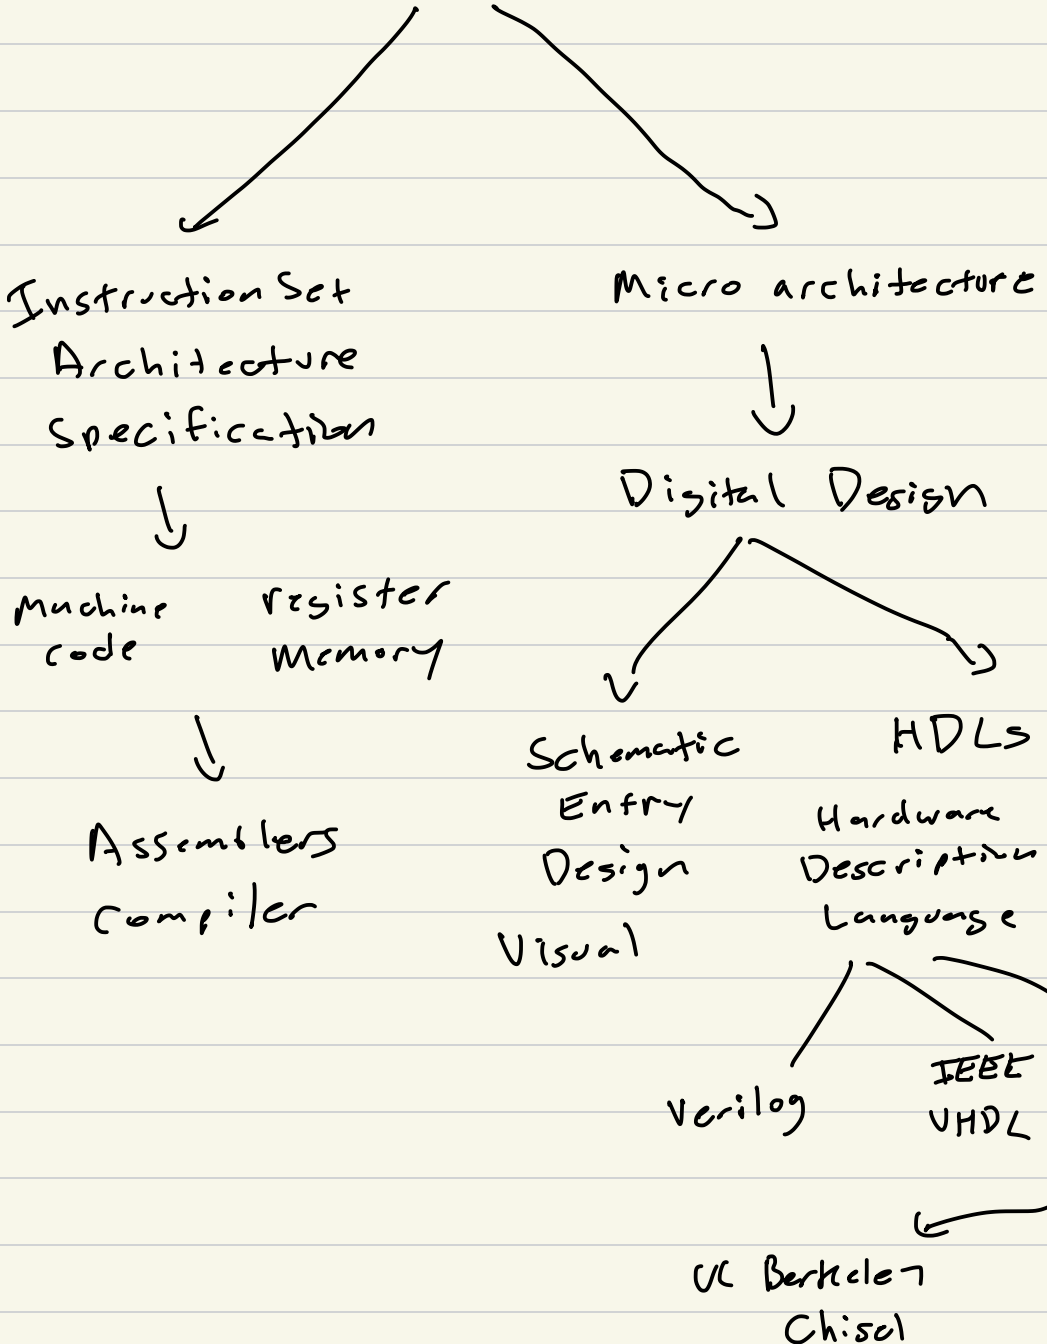 Instruction Set
Architecture
Specification
Machine
code
register
memory
Assemblers
Compiler
Micro architecture
Digital Design
Schematic
Entry
Design
Visual
HDLs
Hardware
Description
Language
Verilog
IEEE
VHDL
UC Berkeley
Chisel